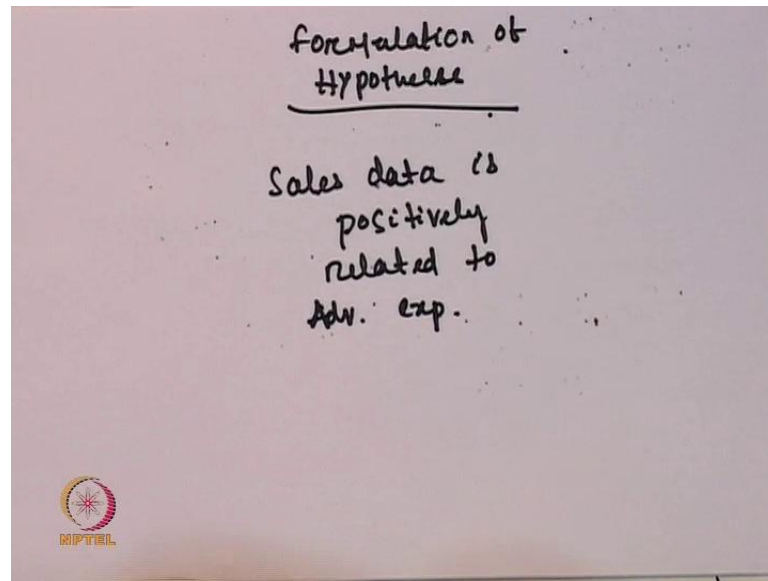 Formulation of
Hypothesis
Sales data is
positively
related to
Adv. exp.
NPTEL